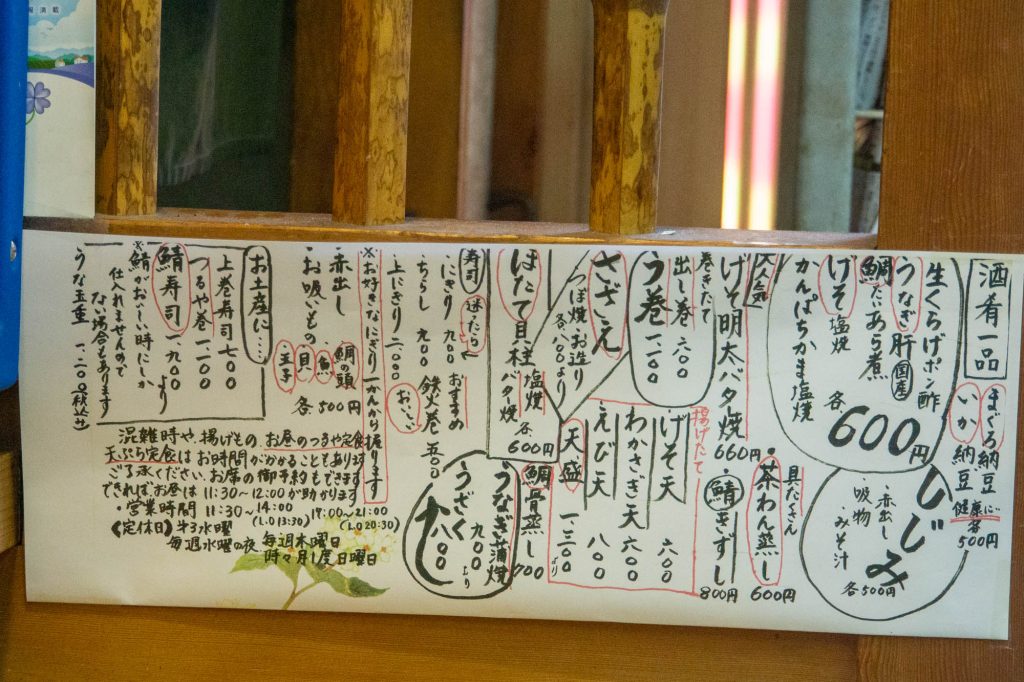 酒肴一品
まぐろ納豆
いか納豆
健康に
各500円
生くらげポン酢
うなぎ肝 国産
鯛たいあら煮
げそ塩焼
かんぱちかま塩焼
各600円
しじみ
・赤出し
・吸物
・みそ汁
各500円
大人気
げそ明太バター焼
660円
具だくさん
茶わん蒸し
600円
鯖きずし
800円
巻きたて
出し巻 六〇〇
う巻 一、一〇〇
揚げたて
げそ天 六〇〇
わかさぎ天 六〇〇
えび天 八〇〇
天盛 一、三〇〇より
さざえ
つぼ焼・お造り
各八〇〇より
ほたて貝柱
塩焼
バター焼
各600円
鯛骨蒸し
700
うなぎ蒲焼
九〇〇より
うざく
八〇〇
寿司 迷ったら
おすすめ
・にぎり 九〇〇
・ちらし 九〇〇
・上にぎり 二、〇〇〇
鉄火巻 五〇〇
おいしい
※お好きなにぎり 一かんから握ります
・赤出し
・お吸いもの
鯛の頭
魚
貝
玉子
各500円
お土産に‥‥
上巻寿司 七〇〇
つるや巻 一、一〇〇
鯖寿司 一、九〇〇より
※鯖がおいしい時にしか
仕入れませんので
ない場合もあります
うな玉重 一、二〇〇(税込み)
混雑時や、揚げもの、お昼のつるや定食
天ぷら定食はお時間がかかることもあります
ご了承ください。お席の御予約もできます
できれば、お昼は11:30~12:00が助かります
・営業時間 11:30~14:00 17:00~21:00
(L.O 13:30) (L.O 20:30)
《定休日》第3水曜
毎週水曜の夜 毎週木曜日
時々月1度日曜日